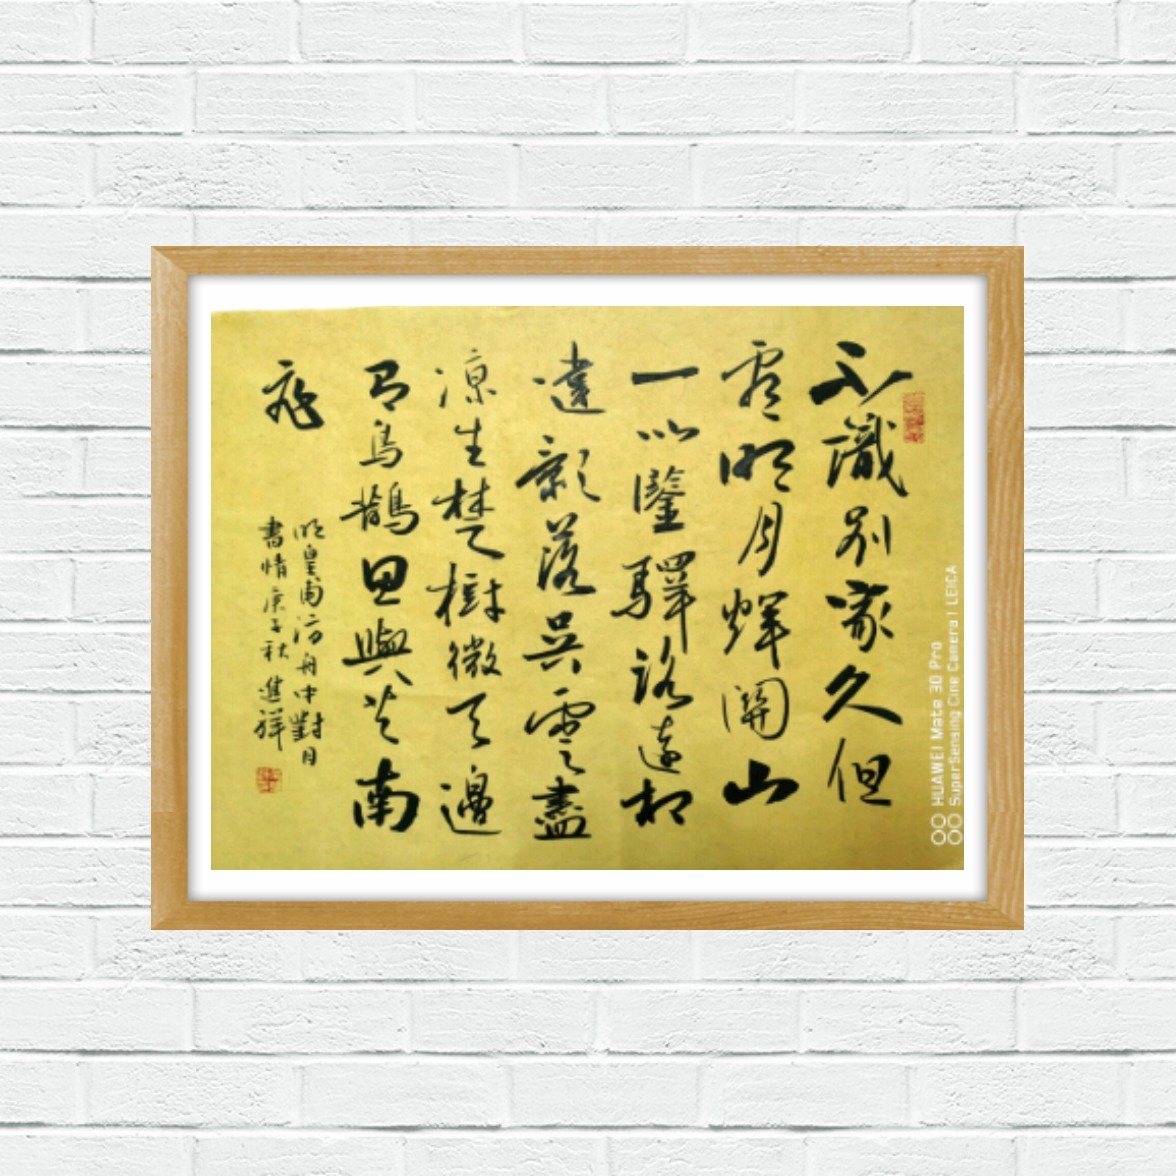 不識別家久但
看明月輝關山
一以鑒驛路遠相
違影落吳雲盡
涼生楚樹微天邊
有烏鵲思與共南
飛
明皇甫汸舟中對月
書情庚子秋進祥
HUAWEI Mate 30 Pro
SuperSensing Cine Camera | LEICA